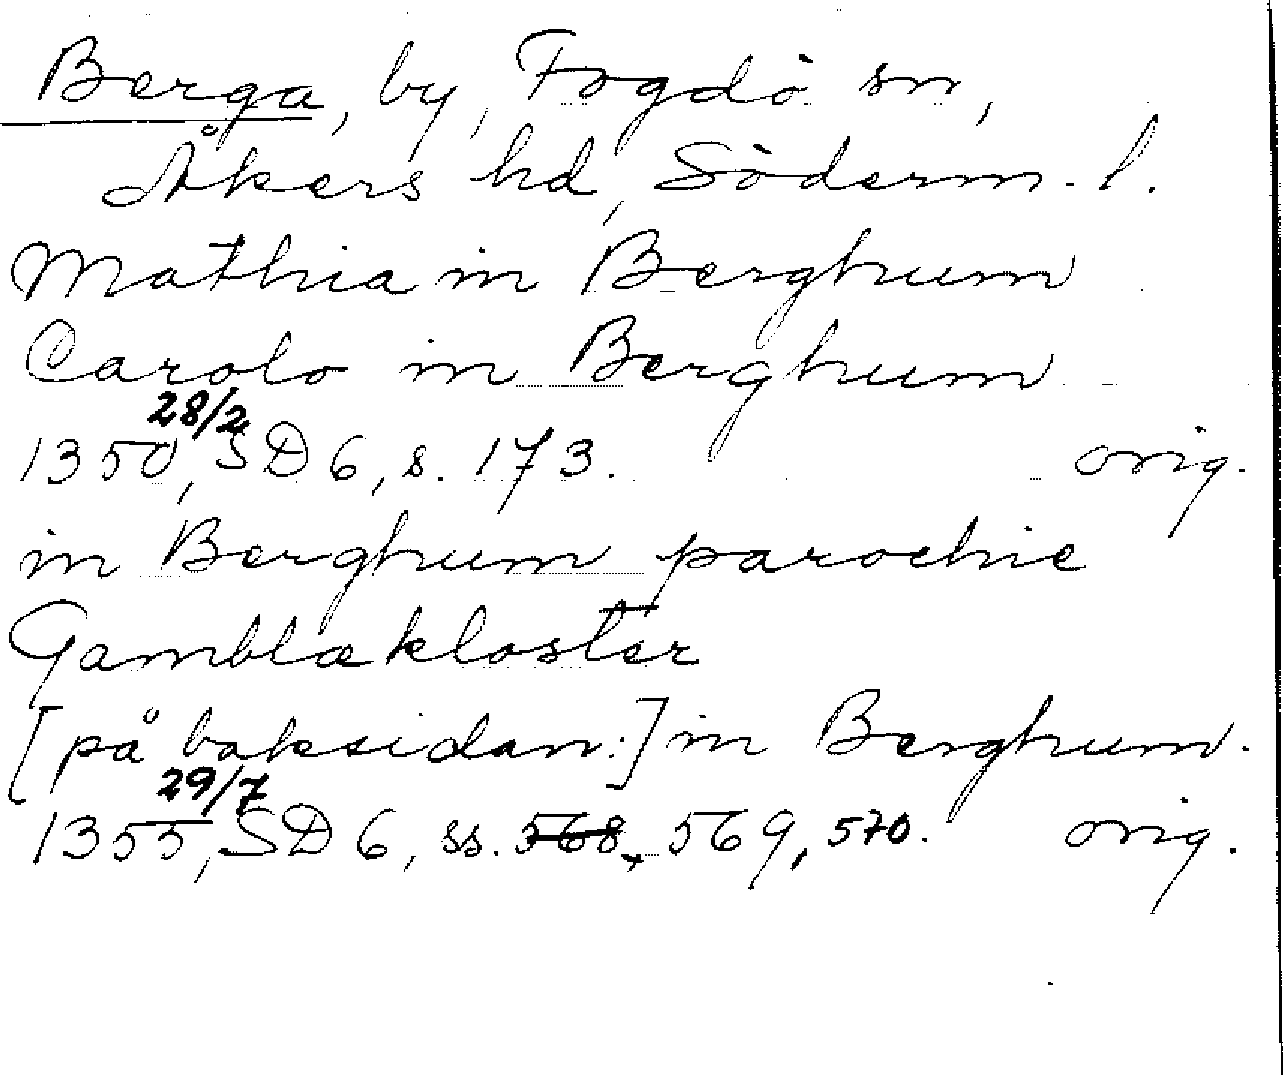 Berga, by, Fogdö sn,
Åkers hd, Söderm. l.
Mathia in Berghum
Carolo in Berghum
28/2
1350, SD 6, s. 173. orig.
in Berghum parochie
Gamblækloster
[på baksidan:] in Berghum.
29/7
1355, SD 6, ss. 568, 569, 570. orig.